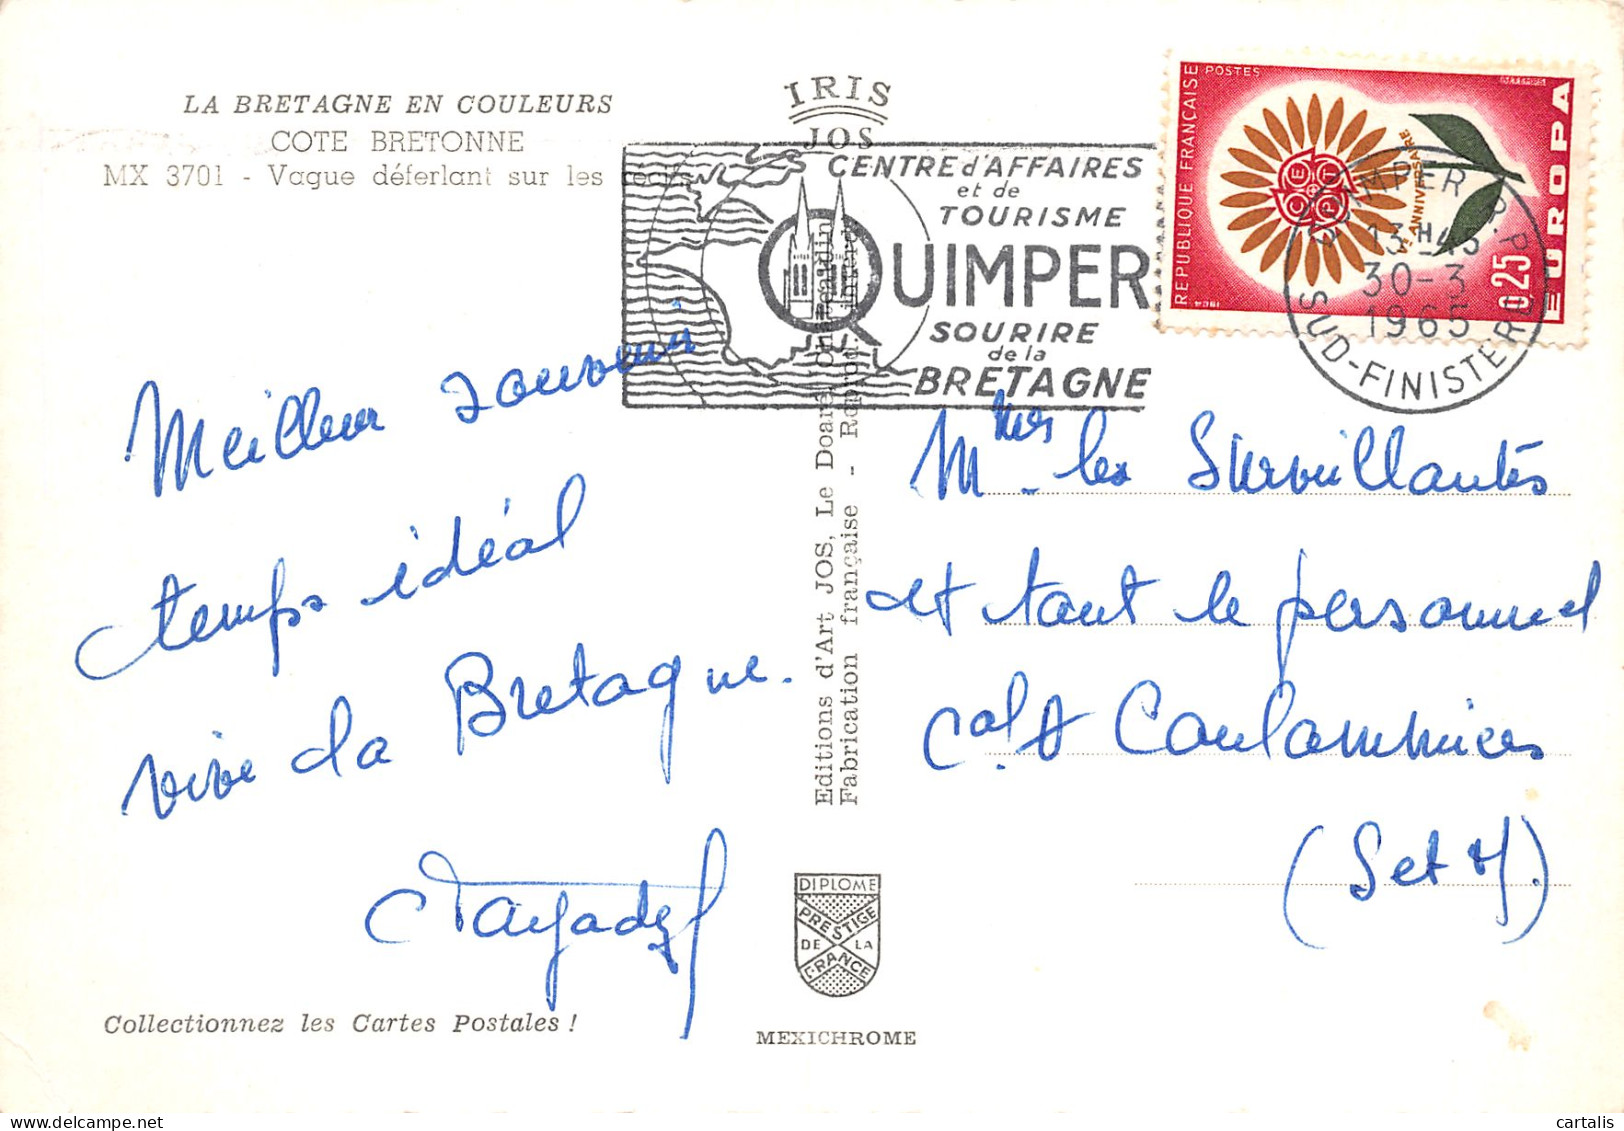 LA BRETAGNE EN COULEURS
COTE BRETONNE
MX 3701 - Vague déferlant sur les récifs
IRIS
JOS
CENTRE d'AFFAIRES
et de
TOURISME
QUIMPER
SOURIRE
de la
BRETAGNE
REPUBLIQUE FRANÇAISE
POSTES
EUROPA
0,25
CEPT
ANNIVERSAIRE
1964
QUIMPER R.P.
13H45
30-3
1965
SUD-FINISTERE
Meilleur souvenir
temps idéal
vive la Bretagne.
Editions d'Art JOS, Le Doaré, Châteaulin
Fabrication française - Reprod. interdite
Mmes les Surveillantes
et tout le personnel
Cal A Coulommiers
(Set M)
DIPLOME
PRESTIGE
DE LA
FRANCE
MEXICHROME
Collectionnez les Cartes Postales !
cartalis
delcampe.net